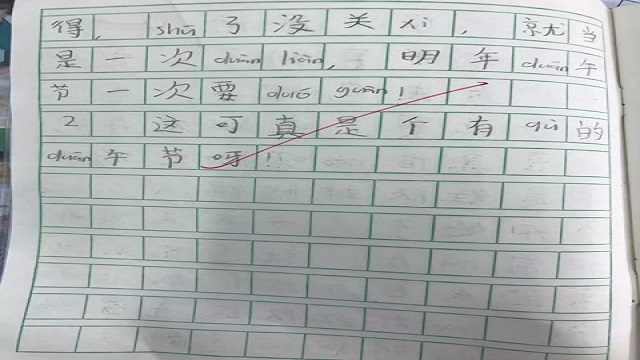 得，shū了没关xì，就当
是一次duàn liàn，明年duān午
节一次要duó guān！
2 这可真是个有qù的
duān午节呀！